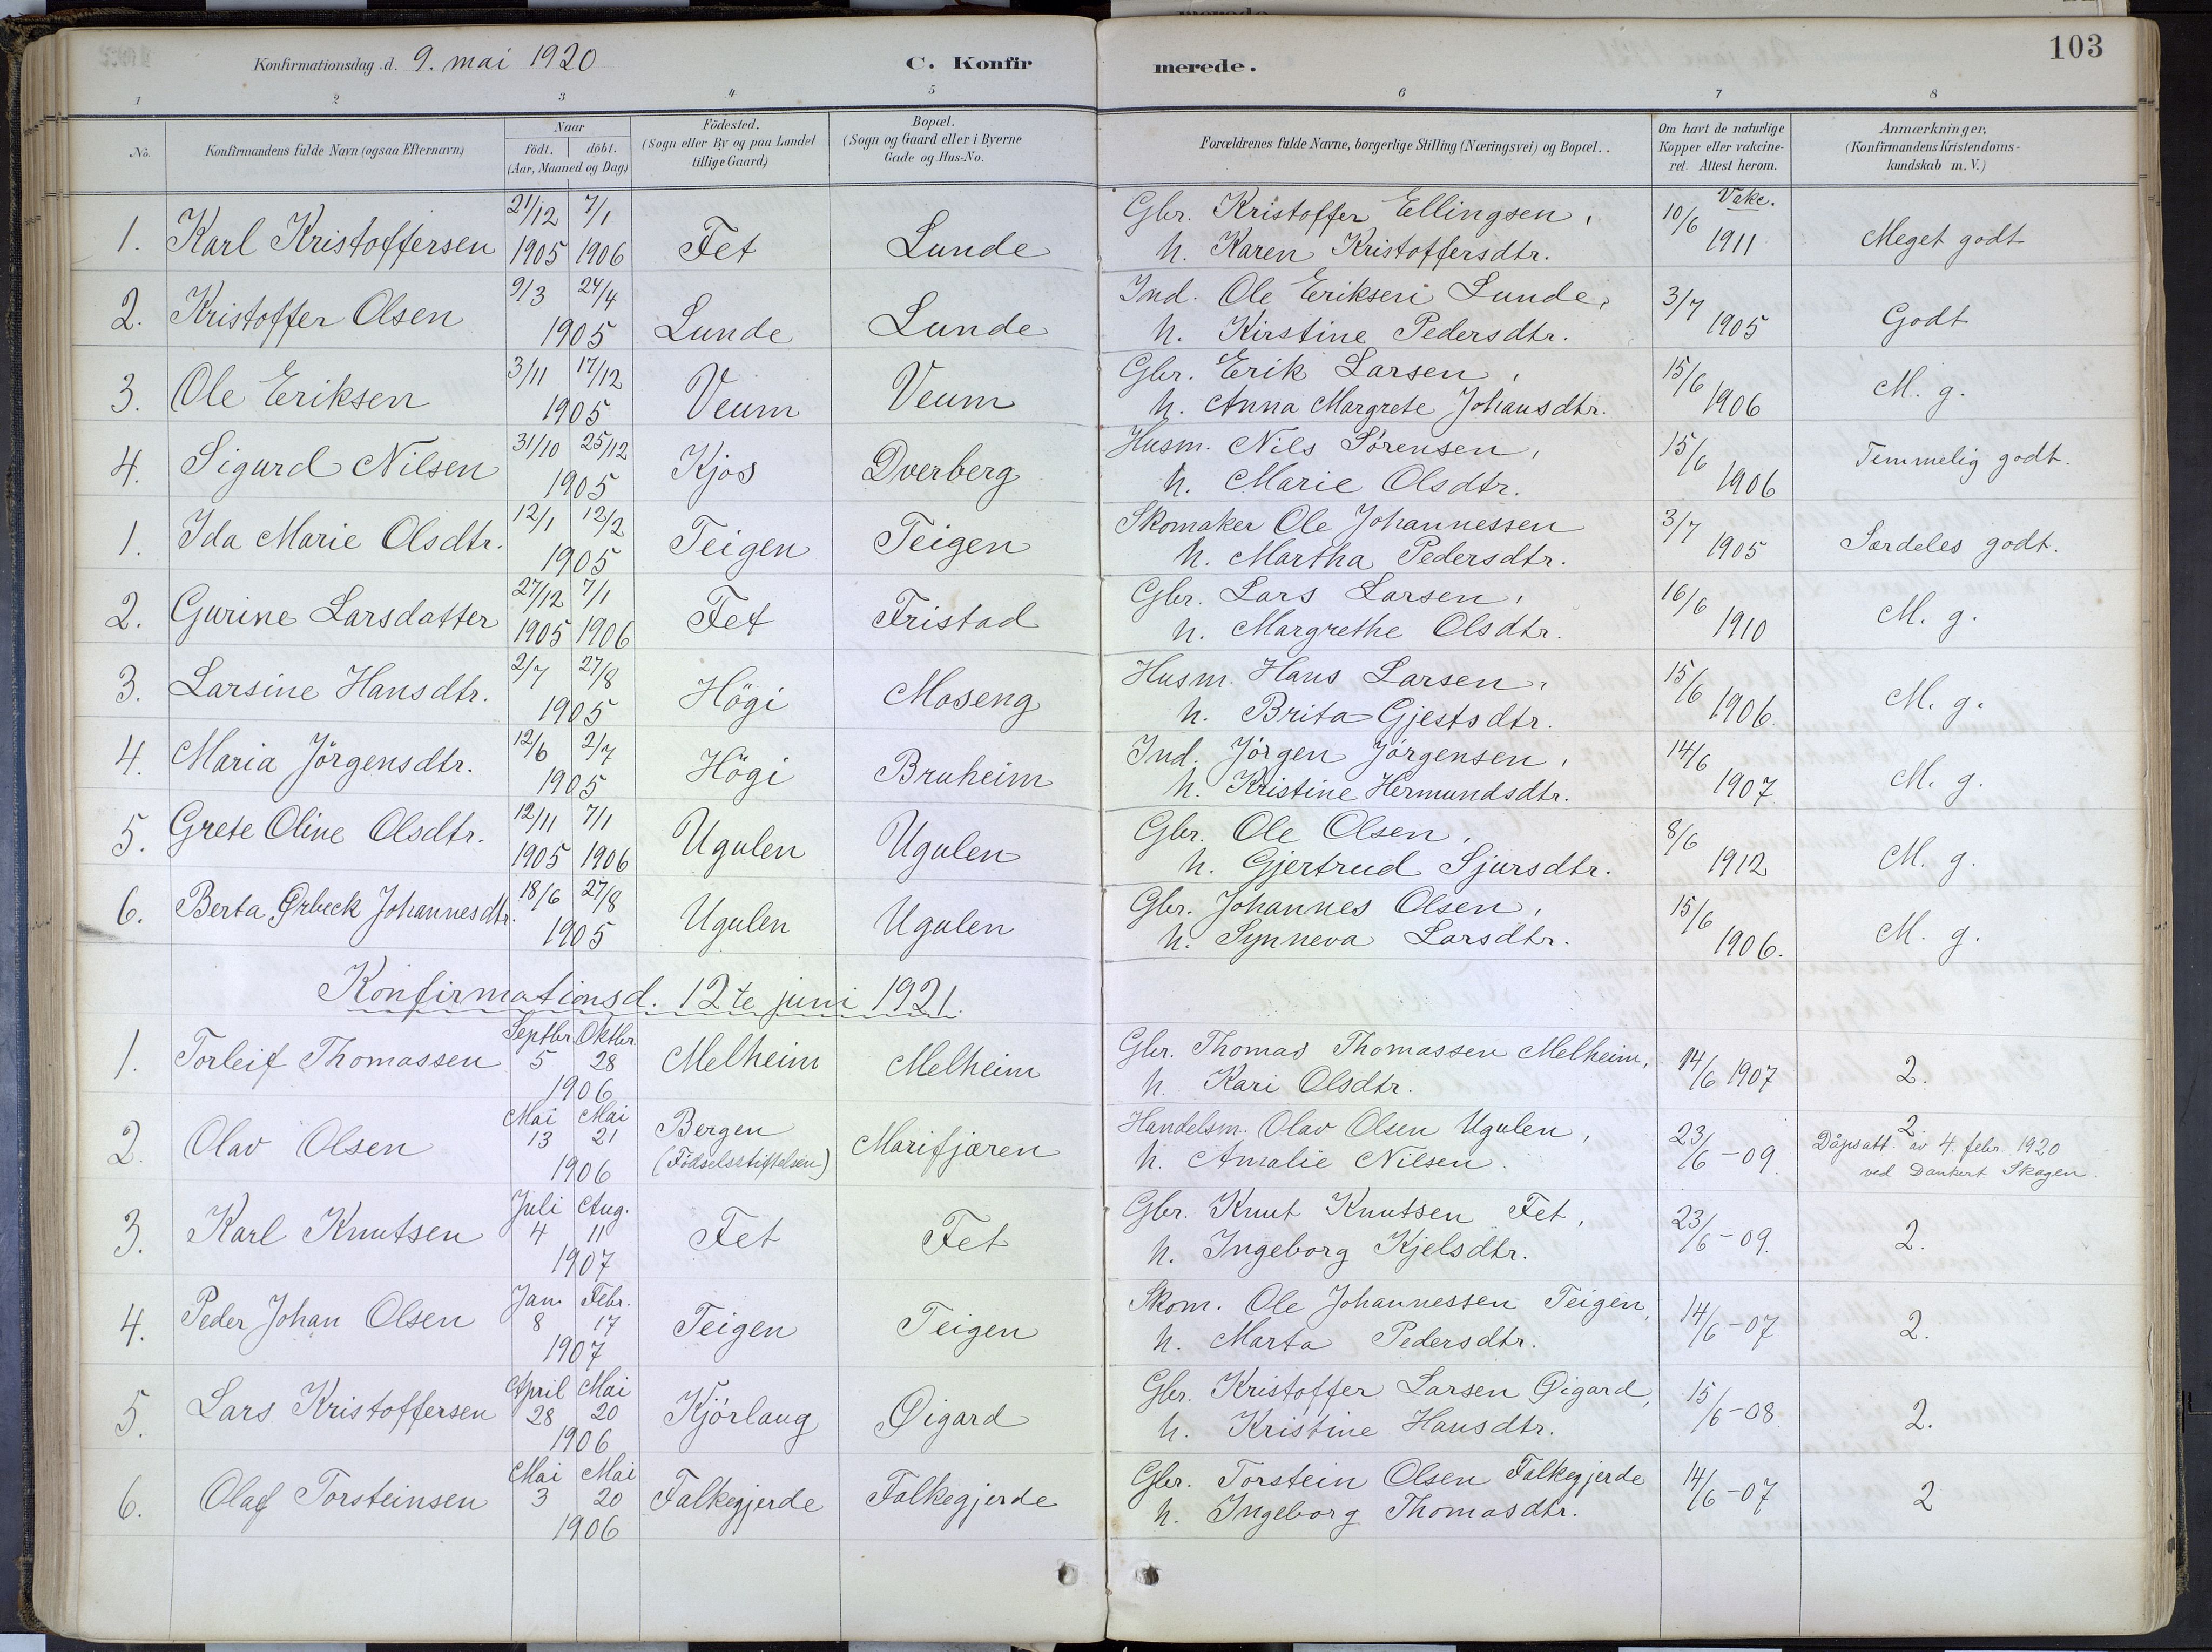 Konfirmationsdag d. 9. mai 1920 C. Konfirmerede. 103
1 2 3 4 5 6 7 8
No. Konfirmandens fulde Navn (ogsaa Efternavn) Naar födt. döbt. (Aar, Maaned og Dag) Födested. (Sogn eller By og paa Landet tillige Gaard) Bopæl. (Sogn og Gaard eller i Byerne Gade og Hus-No. Forældrenes fulde Navne, borgerlige Stilling (Næringsvei) og Bopæl. Om havt de naturlige Kopper eller vakcineret. Attest herom. Anmærkninger, (Konfirmandens Kristendomskundskab m. V.)
Vakc.
1. Karl Kristoffersen 21/12 1905 7/1 1906 Fet Lunde Gbr. Kristoffer Ellingsen, 10/6 1911 Meget godt
h. Karen Kristoffersdtr.
2. Kristoffer Olsen 9/3 24/4 1905 Lunde Lunde Ind. Ole Eriksen Lunde, 3/7 1905 Godt
h. Kirstine Pedersdtr.
3. Ole Eriksen 3/11 17/12 1905 Veum Veum Gbr. Erik Larsen, 15/6 1906 M. g.
h. Anna Margrete Johansdtr.
4. Sigurd Nilsen 31/10 25/12 1905 Kjos Dverberg Husm. Nils Sörensen, 15/6 1906 Temmelig godt.
h. Marie Olsdtr.
1. Ida Marie Olsdtr. 12/1 12/2 1905 Teigen Teigen Skomaker Ole Johannessen 3/7 1905 Særdeles godt.
h. Martha Pedersdtr.
2. Gurine Larsdatter 27/12 1905 7/1 1906 Fet Fristad Gbr. Lars Larsen, 16/6 1910 M. g.
h. Margrethe Olsdtr.
3. Larsine Hansdtr. 2/7 27/8 1905 Högi Moseng Husm. Hans Larsen, 15/6 1906 M. g.
h. Brita Gjestsdtr.
4. Maria Jörgensdtr. 12/6 2/7 1905 Högi Bruheim Ind. Jörgen Jörgensen, 14/6 1907 M. g.
h. Kristine Hermundsdtr.
5. Grete Oline Olsdtr. 12/11 1905 7/1 1906 Ugulen Ugulen Gbr. Ole Olsen, 8/6 1912 M. g.
h. Gjertrud Sjursdtr.
6. Berta Johannesdtr. 18/6 27/8 1905 Ugulen Ugulen Gbr. Johannes Olsen, 15/6 1906. M. g.
h. Synneva Larsdtr.
Konfirmationsd. 12te juni 1921.
1. Torleif Thomassen Septbr. 5 Oktbr. 28 1906 Melheim Melheim Gbr. Thomas Thomassen Melheim, 14/6 1907 2.
h. Kari Olsdtr.
2. Olav Olsen Mai 13 Mai 21 1906 Bergen (Födselsstiftelsen) Marifjæren Handelsm. Olav Olsen Ugulen, 23/6-09 2 Dåpsatt. av 4. febr. 1920
h. Amalie Nilsen. ved Dankert Skagen.
3. Karl Knutsen Juli 4 Aug. 11 1907 Fet Fet Gbr. Knut Knutsen Fet, 23/6-09. 2.
h. Ingeborg Kjelsdtr.
4. Peder Johan Olsen Jan. 8 Febr. 17 1907 Teigen Teigen Skom. Ole Johannessen Teigen, 14/6-07 2.
h. Marta Pedersdtr.
5. Lars Kristoffersen April 28 Mai 20 1906 Kjörlaug Øigard Gbr. Kristoffer Larsen Øigard, 15/6-08 2.
h. Kristine Hansdtr.
6. Olaf Torsteinsen Mai 3 Mai 20 1906 Falkegjerde Falkegjerde Gbr. Torstein Olsen Falkegjerde 14/6-07 2
h. Ingeborg Thomasdtr.